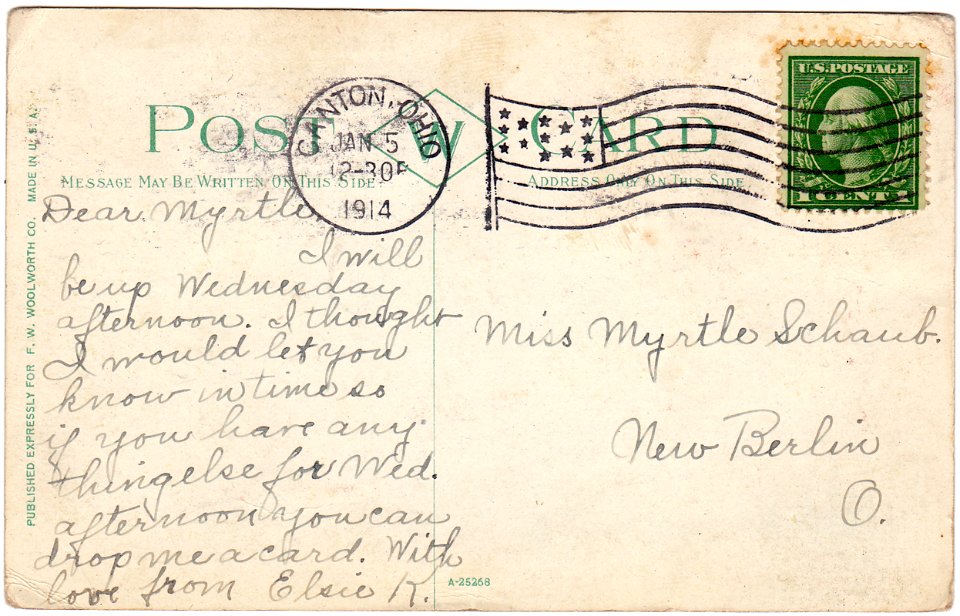 POST CARD
W
CANTON, OHIO
JAN 5
2-30P
1914
U.S. POSTAGE
1 CENT 1
MESSAGE MAY BE WRITTEN ON THIS SIDE
ADDRESS ONLY ON THIS SIDE
PUBLISHED EXPRESSLY FOR F. W. WOOLWORTH CO. MADE IN U. S. A.
Dear Myrtle
I will
be up Wednesday
afternoon. I thought
I would let you
know in time so
if you have any
thing else for Wed.
afternoon you can
drop me a card. With
love from Elsie K.
Miss Myrtle Schaub.
New Berlin
O.
A-25268